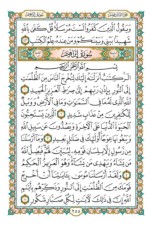 وَيَقُولُ الَّذِينَ كَفَرُوا لَسْتَ مُرْسَلًا قُلْ كَفَىٰ بِاللَّهِ
شَهِيدًا بَيْنِي وَبَيْنَكُمْ وَمَنْ عِندَهُ عِلْمُ الْكِتَابِ
سُورَةُ إِبْرَاهِيمَ
بِسْمِ اللَّهِ الرَّحْمَٰنِ الرَّحِيمِ
الر كِتَابٌ أَنزَلْنَاهُ إِلَيْكَ لِتُخْرِجَ النَّاسَ مِنَ الظُّلُمَاتِ
إِلَى النُّورِ بِإِذْنِ رَبِّهِمْ إِلَىٰ صِرَاطِ الْعَزِيزِ الْحَمِيدِ
اللَّهِ الَّذِي لَهُ مَا فِي السَّمَاوَاتِ وَمَا فِي الْأَرْضِ وَوَيْلٌ
لِّلْكَافِرِينَ مِنْ عَذَابٍ شَدِيدٍ الَّذِينَ يَسْتَحِبُّونَ
الْحَيَاةَ الدُّنْيَا عَلَى الْآخِرَةِ وَيَصُدُّونَ عَن سَبِيلِ اللَّهِ
وَيَبْغُونَهَا عِوَجًا أُولَٰئِكَ فِي ضَلَالٍ بَعِيدٍ وَمَا أَرْسَلْنَا
مِن رَّسُولٍ إِلَّا بِلِسَانِ قَوْمِهِ لِيُبَيِّنَ لَهُمْ فَيُضِلُّ اللَّهُ
مَن يَشَاءُ وَيَهْدِي مَن يَشَاءُ وَهُوَ الْعَزِيزُ الْحَكِيمُ
وَلَقَدْ أَرْسَلْنَا مُوسَىٰ بِآيَاتِنَا أَنْ أَخْرِجْ قَوْمَكَ
مِنَ الظُّلُمَاتِ إِلَى النُّورِ وَذَكِّرْهُم بِأَيَّامِ
اللَّهِ إِنَّ فِي ذَٰلِكَ لَآيَاتٍ لِّكُلِّ صَبَّارٍ شَكُورٍ